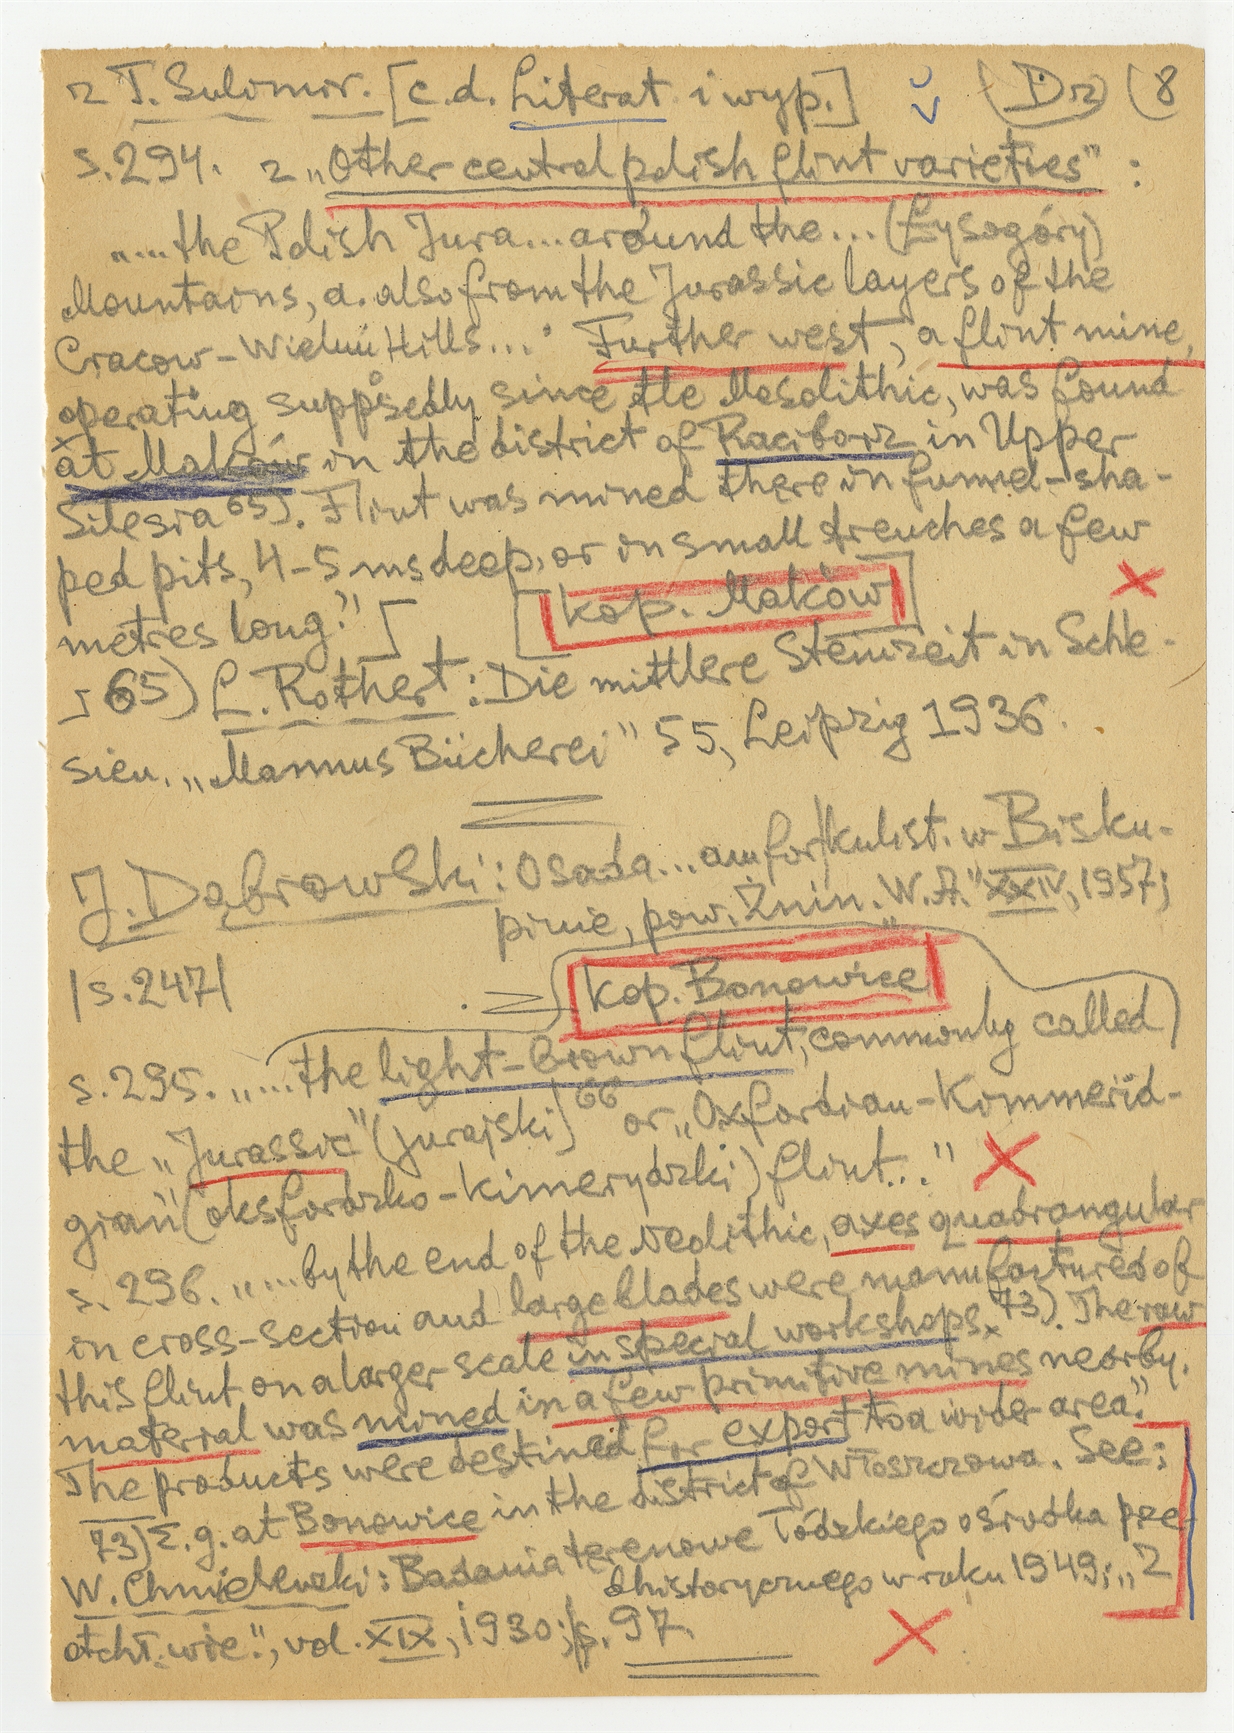 z T. Sulimir. [c.d. Literat. i wyp.] (Dz) (8
s.294. z „Other central polish flint varieties" :
„...the Polish Jura...around the...(Łysogóry)
Mountains, a. also from the Jurassic layers of the
Cracow-Wieluń Hills... Further west, a flint mine,
operating supposedly since the Mesolithic, was found
at Maków in the district of Racibórz in Upper
Silesia 65). Flint was mined there in funnel-sha-
ped pits, 4-5 ms deep, or in small trenches a few
metres long."] [kop. Maków]
65) L. Rothert: Die mittlere Steinzeit in Schle-
sien. „Mannus Bücherei" 55, Leipzig 1936.
J. Dąbrowski: Osada...amfor/kulist. w Bisku-
pinie, pow. Żnin. „W.A." XXIV, 1957;
|s.247| kop. Bonowice
s.295. „....the light-brown flint, commonly called)
the „Jurassic" (jurajski) 66 or „Oxfordian-Kimmerid-
gian" (oksfordzko-kimerydzki) flint..."
s. 296. „...by the end of the Neolithic, axes quadrangular
in cross-section and large blades were manufactured of
this flint on a larger scale in special workshops. 73). The raw
material was mined in a few primitive mines nearby.
The products were destined for export to a wider area."
73) E.g. at Bonowice in the district of Włoszczowa. See:
W. Chmielewski: Badania terenowe Łódzkiego ośrodka pre-
historycznego w roku 1949; „Z
otchł. wie.", vol. XIX, 1930; s. 97